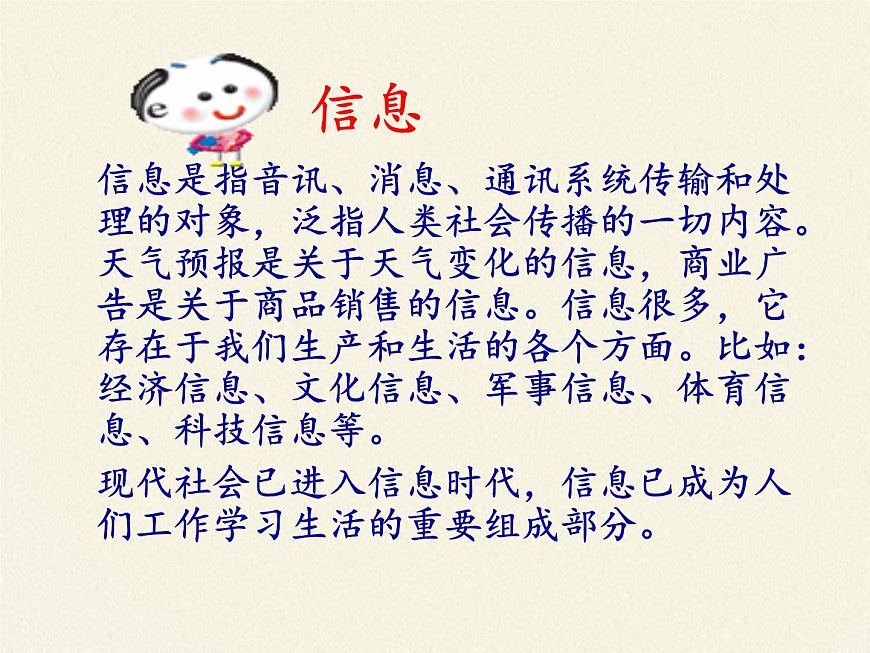 e
信息
信息是指音讯、消息、通讯系统传输和处
理的对象，泛指人类社会传播的一切内容。
天气预报是关于天气变化的信息，商业广
告是关于商品销售的信息。信息很多，它
存在于我们生产和生活的各个方面。比如：
经济信息、文化信息、军事信息、体育信
息、科技信息等。
现代社会已进入信息时代，信息已成为人
们工作学习生活的重要组成部分。